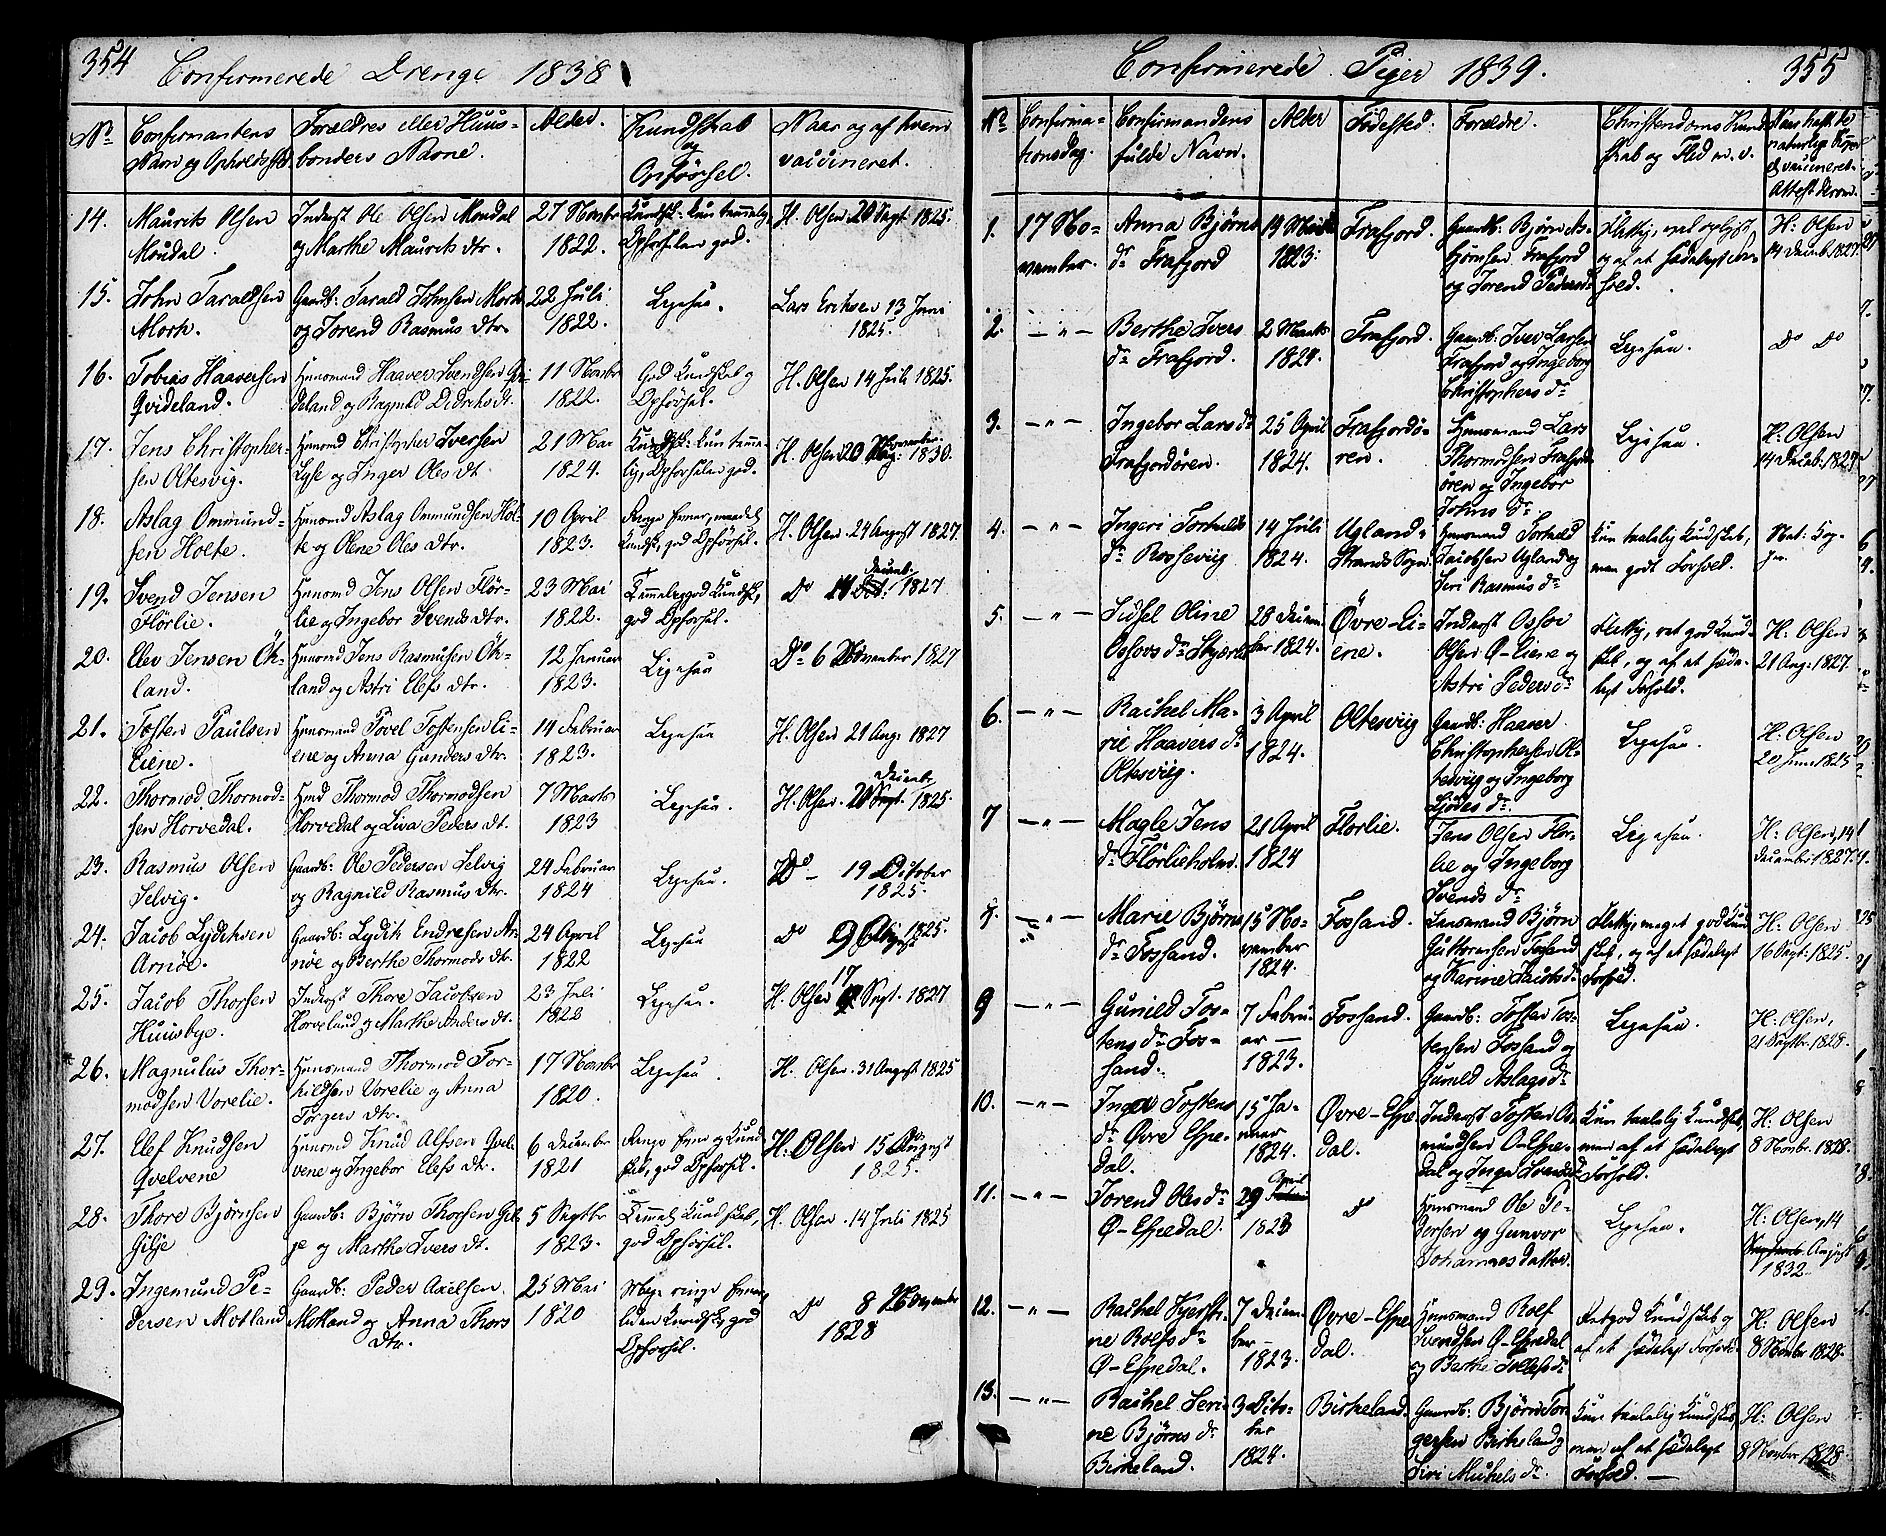 354
Confirmerede Drenge 1838
No
Confirmantens
Navn og Opholdssted
Forældres eller Huus-
bonders Navne.
Alder.
Kundskab
og
Opførsel.
Naar og af hvem
vaccineret.
14.
Maurits Olsen
Moudal.
Inderst Ole Olsen Moudal
og Marthe Maurits dtr.
27 Novbr
1822.
Kundsk: kun temmelig,
Opførselen god.
H. Olsen 20 Sept. 1825.
15.
John Taraldsen
Mork.
Gaardb: Tarald Johnsen Mork
og Torend Rasmus dtr.
22 Juli
1822.
Ligesaa.
Lars Eriksen 13 Juni
1825.
16.
Tobias Haaversen
Qvideland.
Huusmand Haaver Svendsen Qvi-
deland og Ragnild Didriks dt.
11 Novbr
1822.
God Kundskab og
Opførsel.
H. Olsen 14 Juli 1825.
17.
Jens Christopher-
sen Oltesvig.
Huusmd Christopher Iversen
Lyse og Inger Oles dt.
21 Mai
1824.
Kundsk: kun temme-
lig, Opførselen god.
H. Olsen 20 November 1830.
18.
Aslag Ommund-
sen Holte.
Huusmd Aslag Ommundsen Hol-
te og Olene Oles dtr.
10 April
1823.
Ringe Evner, maadel.
Kundsk., god Opførsel.
H. Olsen 21 August 1827.
19.
Svend Jensen
Flörlie.
Huusmd Jens Olsen Flör-
lie og Ingebor Svends dtr.
23 Mai
1822.
Temmelig god Kundsk.,
god Opførsel.
Do 14 Decemb. 1827
20.
Elev Jensen Ök-
land.
Huusmd Jens Rasmusen Ök-
land og Astri Elefs dtr.
12 Januar
1823.
Ligesaa
Do 6 November 1827
21.
Tosten Paulsen
Eiene.
Huusmand Povel Tostensen Ei-
ene og Anna Gunders dtr.
14 Februar
1823.
Ligesaa
H. Olsen 21 Aug. 1827
22.
Thormod Thormod-
sen Horvedal.
Husmd Thormod Thormodsen
Horvedal og Liva Peders dt.
7 Marts
1823
Ligesaa.
H. Olsen 20 Decembr 1825.
23.
Rasmus Olsen
Selvig.
Gaardb: Ole Pedersen Selvig
og Ragnild Rasmus dtr.
24 Februar
1824
Ligesaa.
Do – 19 October
1825.
24.
Jacob Lydiksen
Arnöe.
Gaardb: Lydik Endresen Ar-
nöe og Berthe Thormods dt.
24 April
1822
Ligesaa
Do 9 August 1825.
25.
Jacob Thorsen
Huusbye.
Inderst Thore Jacobsen
Horveland og Marthe Anders dt.
23 Juli
1822
Ligesaa.
H. Olsen 17 Sept. 1827
26.
Magnulus Thor-
modsen Vorelie.
Huusmand Thormod Tor-
kildsen Vorelie og Anna
Torgers dtr.
17 Novbr
1820.
Ligesaa.
H. Olsen 31 August 1825
27.
Elef Knudsen
Qvelvene
Huusmd Knud Alfsen Qvel-
vene og Ingebor Elefs dt.
6 December
1821
Ringe Evne og Kund-
skab, god Opførsel.
H. Olsen 15 August
1825.
28.
Thore Bjørnsen
Gilje
Gaardb: Bjørn Thorsen Gil-
je og Marthe Ivers dt.
5 Septbr
1823.
Temmel. Kundskab,
god Opførsel.
H. Olsen 14 Juli 1825
29.
Ingemund Pe-
dersen Motland
Gaardb: Peder Axelsen
Motland og Anna Thors
dtr.
25 Mai
1820
Meget ringe Evner,
liden Kundsk., god
Opførsel.
Do 8 November
1828
355
Confirmerede Piger 1839.
No
Confirma-
tionsdag.
Confirmandens
fulde Navn.
Alder
Födested.
Forældre.
Christendoms Kund-
skab og Flid m. v.
Naar havt de
naturlige Kopper
og vaccineret.
Attest derom.
1.
17 No-
vember.
Anna Bjørns
dr Frafjord
19 Marts
1823.
Frafjord.
Gaardb: Bjørn As-
bjørnsen Frafjord
og Torend Peders dr
Flittig, vel oplyst,
og af et sædeligt For-
hold.
H: Olsen
14 Decemb. 1827.
2.
– " –
Berthe Ivers
dr Frafjord.
2 Marts
1824.
Frafjord.
Gaardb: Iver Larsen
Frafjord og Ingeborg
Christophers dr
Ligesaa.
Do Do
3.
– " –
Ingebor Lars dr
Frafjordören.
25 April
1824.
Frafjordö-
ren.
Huusmand Lars
Thormodsen Frafjord-
ören og Ingebor
Johns dr
Ligesaa.
H: Olsen
14 Decemb. 1827
4.
– " –
Ingeri Torkilds
dr Rosseviig
14 Juli
1824.
Ugland-
Strands Sogn.
Huusmand Torkild
Jacobsen Ugland og
Siri Rasmus dr
Kun taalelig Kundskab,
men godt Forhold.
Nat: Kop-
per.
5.
– " –
Sidsel Oline
Oslovs dr Skjæret
28 Decem-
ber 1824.
Övre-Ei-
ene.
Inderst Oslov
Olsen Ö-Eiene og
Astri Peders dr
Flittig, ret god Kund-
skab, og af et sæde-
ligt Forhold.
H: Olsen
21 Aug. 1827.
6.
– " –
Rachel Ma-
rie Haavers dr
Oltesviig.
3 April
1824.
Oltesviig
Gaardb: Haaver
Christophersen Ol-
tesviig og Ingeborg
Sjovers dr.
Ligesaa.
H: Olsen
20 Juni 1825
7
– " –
Magle Jens
dr Flörlieholm.
21 April
1824
Florlie.
Jens Olsen Flor-
lie og Ingeborg
Svends dr
Ligesaa.
H: Olsen, 14
December 1827.
8.
– " –
Marie Bjørns
dr Fossand.
15 No-
vember
1824.
Fossand.
Lensmand Bjørn
Guttormsen Fossand
og Karine Jacobs dr
Flittig, meget god Kund-
skab, og af et sædeligt
Forhold.
H: Olsen
16 Sept: 1825.
9
– " –
Gunild Tos-
tens dr Fos-
sand.
7 Febru-
ar –
1823.
Fossand.
Gaardb: Tosten Tos-
tensen Fossand og
Gunild Aslags dr
Ligesaa.
H: Olsen,
21 Septbr. 1828.
10.
– " –
Inga Tostens
dr Övre Espe-
dal.
15 Ja-
nuar
1824.
Övre-Espe
dal.
Inderst Tosten Os-
mundsen Ö-Espe-
dal og Inga Svends dr
Kun taalelig Kundskab,
men af et sædeligt
Forhold.
H: Olsen
8 Novbr. 1828.
11.
– " –
Torend Oles dr
Ö-Espedal.
29 April
1823
do
Huusmand Ole Pe-
dersen og Gunvor
Johannesdatter.
Ligesaa.
H: Olsen, 14
August
1832.
12.
– " –
Rachel Kjersti-
ne Rolfs dr
Ö-Espedal.
7 Decem-
ber –
1823.
Övre-Espe
dal.
Huusmand Rolf
Svendsen Ö-Espedal
og Berthe Tollefs dr
Ret god Kundskab og
af et sædeligt Forhold.
H: Olsen
8 Novbr. 1828.
13.
– " –
Rachel Seri-
ne Bjørns dr
Birkeland.
3 Octo-
ber
1824.
Birkeland.
Gaardb: Bjørn Tor-
gersen Birkeland og
Siri Mikkels dr.
Kun taalelig Kundskab,
men af et sædeligt
Forhold. –
H: Olsen
8 November 1828.